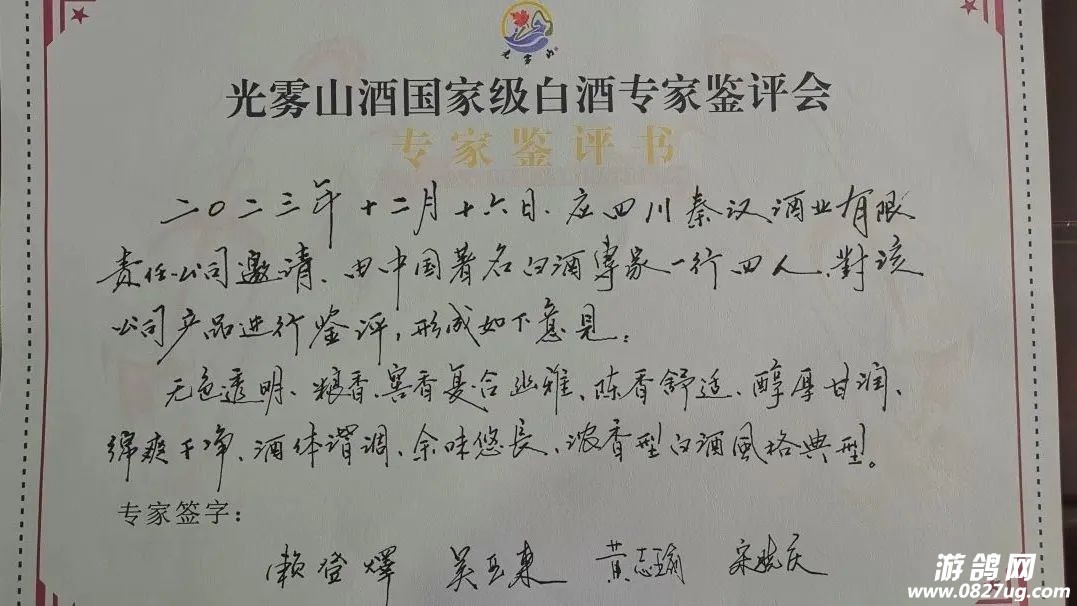 光雾山
光雾山酒国家级白酒专家鉴评会
专家鉴评书
二〇二三年十二月十六日、应四川秦汉酒业有限
责任公司邀请、由中国著名白酒專家一行四人、對该
公司产品进行鉴评,形成如下意見:
无色透明、粮香、窖香复合幽雅、陈香舒适、醇厚甘润、
绵爽干净、酒体谐调、余味悠長、浓香型白酒風格典型。
专家签字:
赖登燡 吴玉東 黄志瑜 宋晓庆
游鸽网
www.0827ug.com